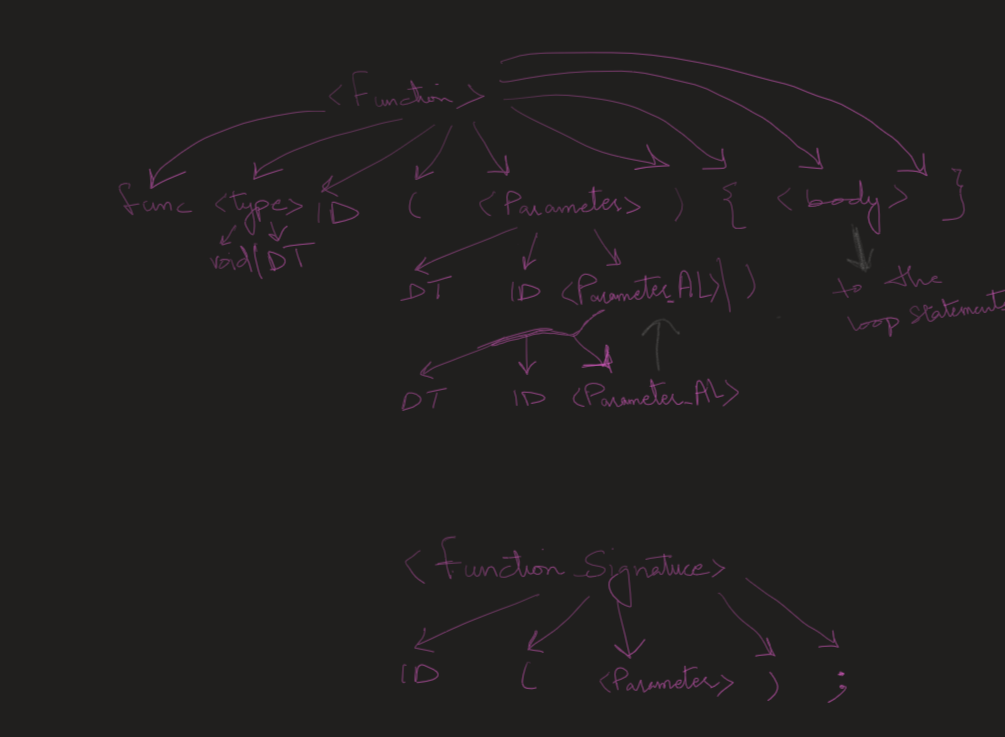 <Function>
func <type> ID ( <Parameter> ) { <body> }
void | DT
DT ID <Parameter_AL> | )
to the
loop statements
DT ID <Parameter_AL>
<Function_Signature>
ID ( <Parameter> ) ;